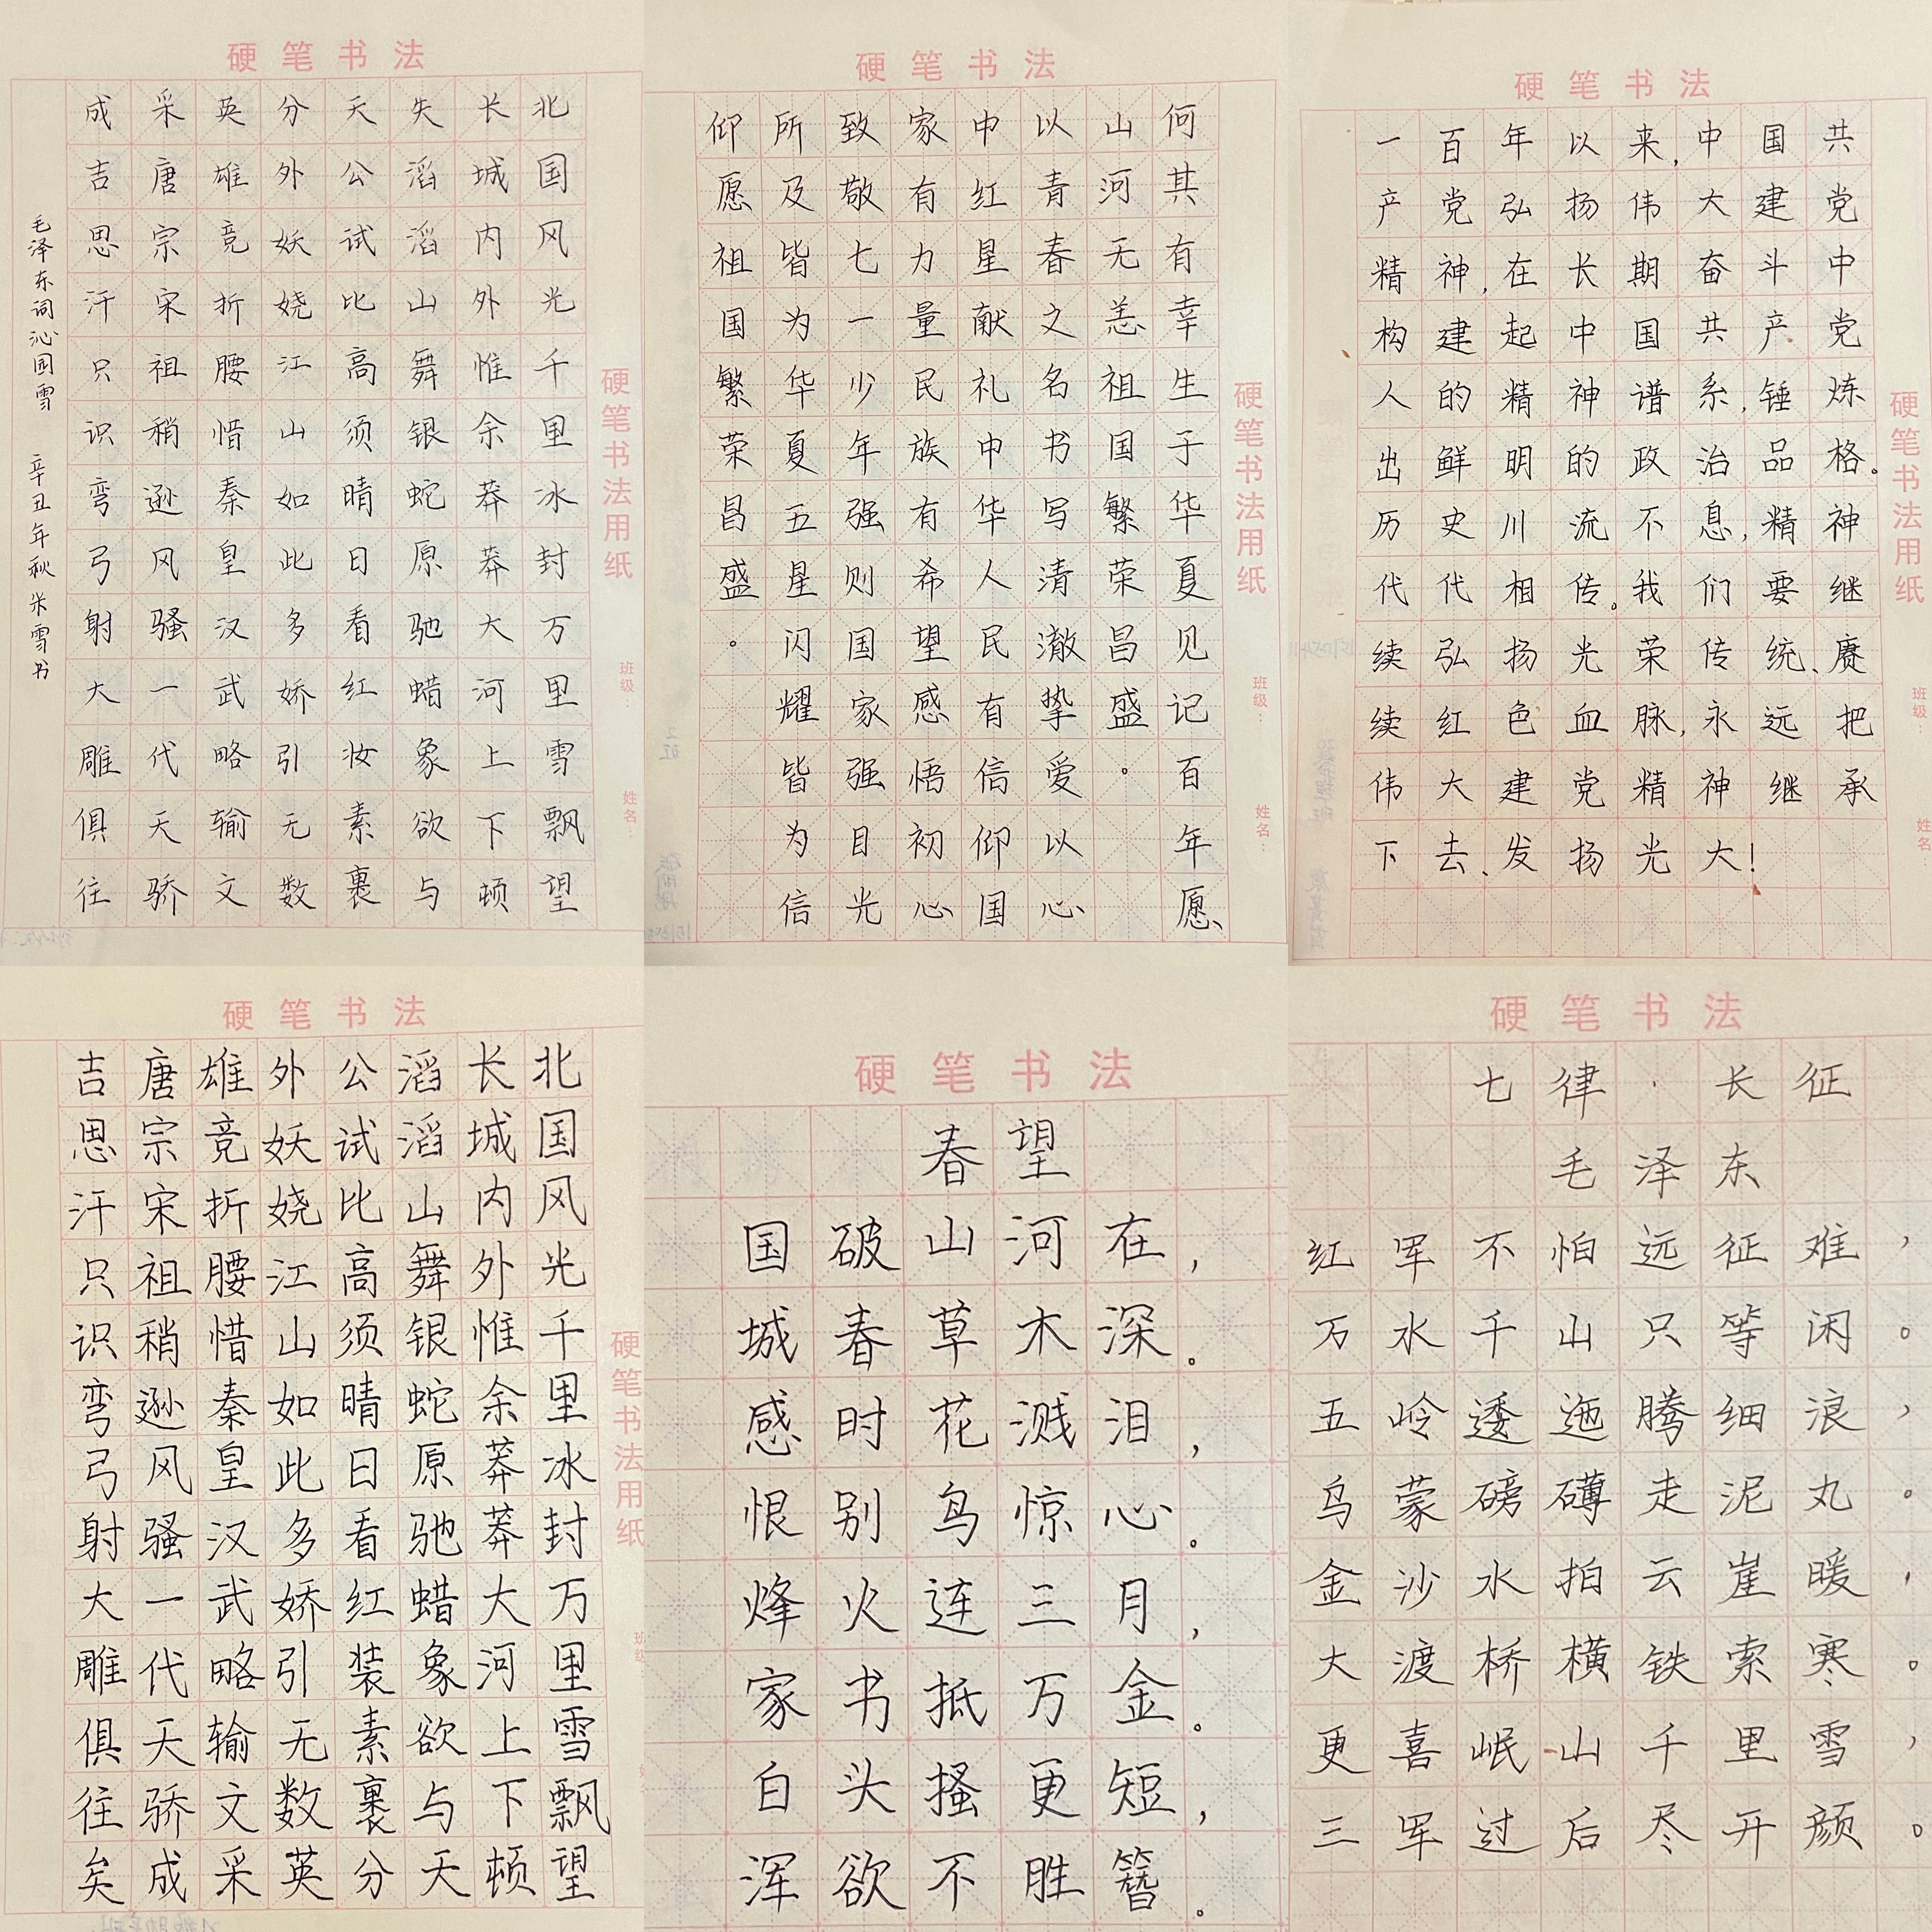 硬笔书法
北国风光千里冰封万里雪飘望
长城内外惟余莽莽大河上下顿
失滔滔山舞银蛇原驰蜡象欲与
天公试比高须晴日看红妆素裹
分外妖娆江山如此多娇引无数
英雄竞折腰惜秦皇汉武略输文
采唐宗宋祖稍逊风骚一代天骄
成吉思汗只识弯弓射大雕俱往
毛泽东词沁园雪 辛丑年秋 米雪书
硬笔书法用纸
班级:
姓名:
硬笔书法
何其有幸生于华夏见记百年愿、
山河无恙祖国繁荣昌盛。
以青春之名书写清澈挚爱以心
中红星献礼中华人民有信仰国
家有力量民族有希望感悟初心、
致敬七一少年强则国家强目光
所及皆为华夏五星闪耀皆为信
仰愿祖国繁荣昌盛。
硬笔书法用纸
班级:
姓名:
硬笔书法
一百年以来,中国共
产党弘扬伟大建党
精神,在长期奋斗中
构建起中国共产党
人的精神谱系,锤炼
出鲜明的政治品格。
历史川流不息,精神
代代相传。我们要继
续弘扬光荣传统、赓
续红色血脉,永远把
伟大建党精神继承
下去、发扬光大!
硬笔书法用纸
班级:
姓名
硬笔书法
北国风光千里冰封万里雪飘望
长城内外惟余莽莽大河上下顿
滔滔山舞银蛇原驰蜡象欲与天
公试比高须晴日看红装素裹分
外妖娆江山如此多娇引无数英
雄竞折腰惜秦皇汉武略输文采
唐宗宋祖稍逊风骚一代天骄成
吉思汗只识弯弓射大雕俱往矣
硬笔书法用纸
硬笔书法
春望
国破山河在,
城春草木深。
感时花溅泪,
恨别鸟惊心。
烽火连三月,
家书抵万金。
白头搔更短,
浑欲不胜簪。
硬笔书法
七律·长征
毛泽东
红军不怕远征难,
万水千山只等闲。
五岭逶迤腾细浪,
乌蒙磅礴走泥丸。
金沙水拍云崖暖,
大渡桥横铁索寒。
更喜岷山千里雪,
三军过后尽开颜。